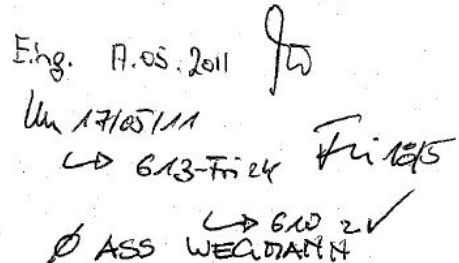 Eing. 17.05.2011
Un 17/05/11
↳ 613-Fri 24 Fri 18/5
↳ 610 2 ✓
Ø ASS WEGMANN